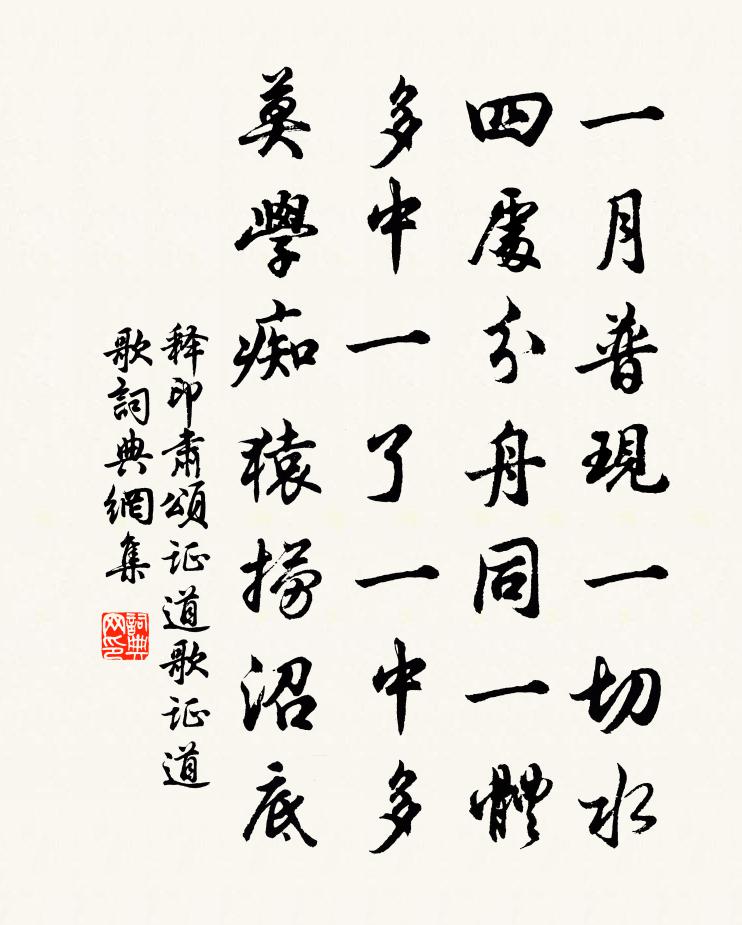 一月普現一切水
四處分舟同一體
多中一了一中多
莫學痴猿撈沼底
释印肃頌证道歌证道
歌詞典網集
詞典网印